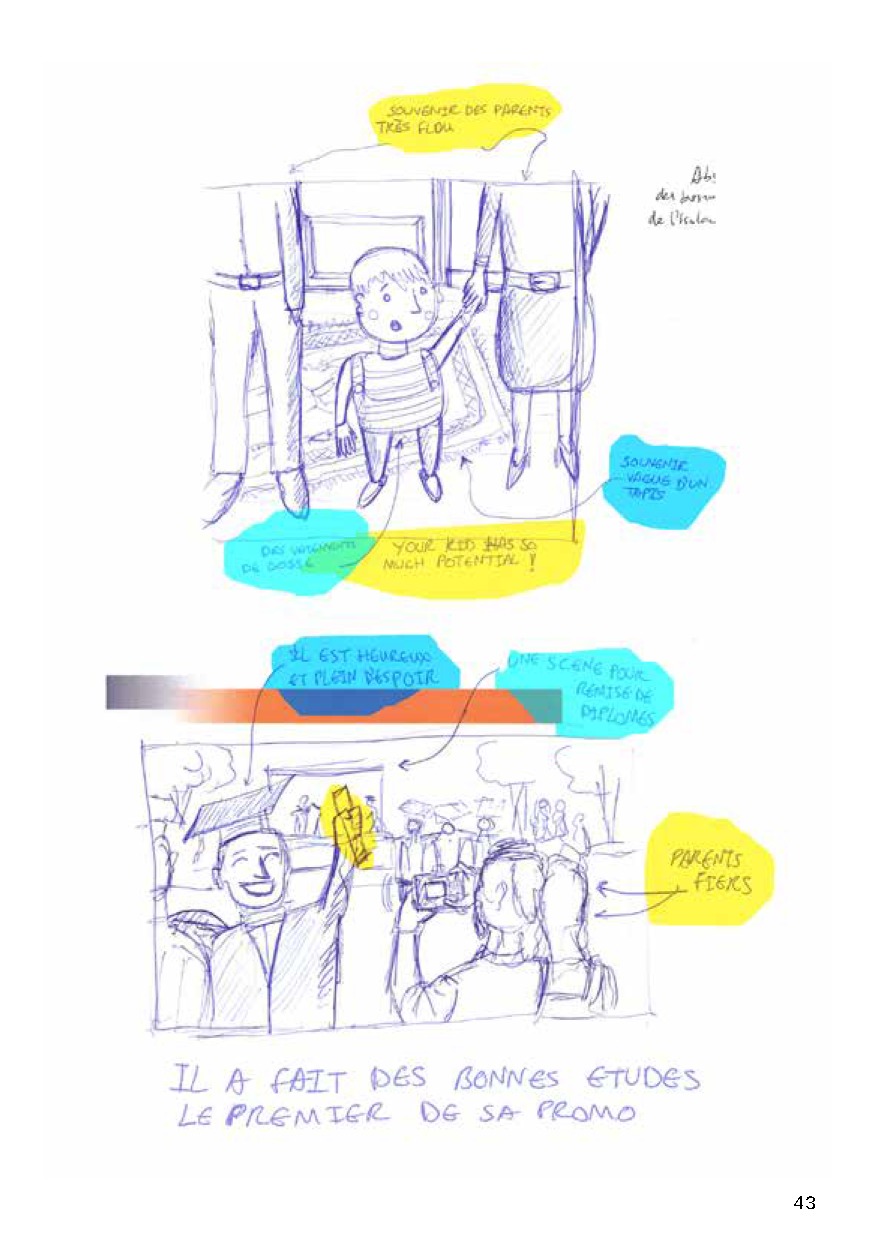 SOUVENIR DES PARENTS
TRÈS FLOU
de l'
SOUVENIR
VAGUE D'UN
TAPIS
DES VETEMENTS
DE GOSSE
YOUR KID HAS SO
MUCH POTENTIAL !
IL EST HEUREUX
ET PLEIN D'ESPOIR
UNE SCENE POUR
REMISE DE
DIPLOMES
PARENTS
FIERS
IL A FAIT DES BONNES ETUDES
LE PREMIER DE SA PROMO
43